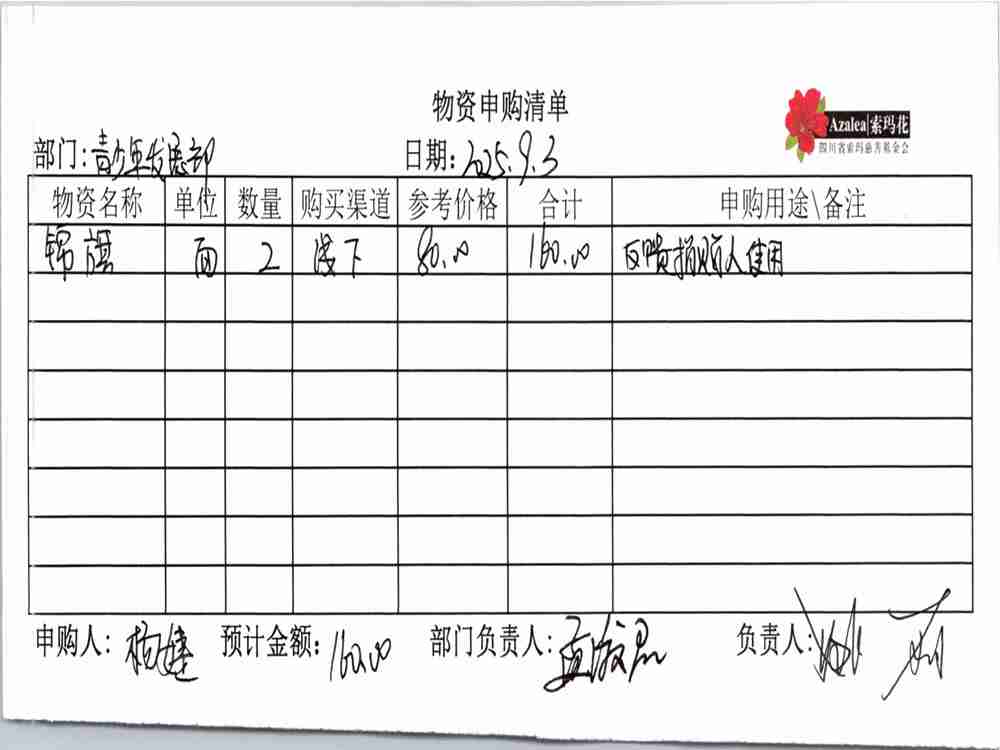 物资申购清单
Azalea 索玛花
四川省索玛慈善基金会
部门:青少年发展部 日期:2025.9.3
物资名称 单位 数量 购买渠道 参考价格 合计 申购用途\备注
锦旗 面 2 线下 80.00 160.00 反馈捐赠人使用
申购人:杨婕 预计金额:160.00 部门负责人: 负责人: